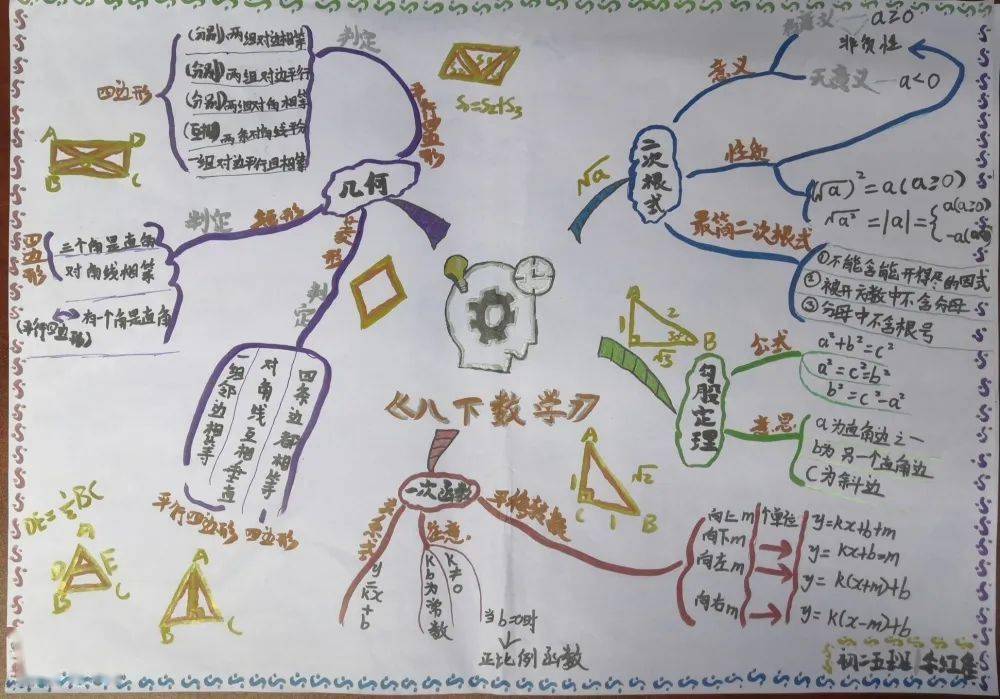 《八下数学》
几何
平行四边形
判定
四边形
(分别)两组对边相等
(分别)两组对边平行
(分别)两组对角相等
(互相)两条对角线平分
一组对边平行且相等
A
D
B
C
S₁=S₂+S₃
矩形
判定
四边形
三个角是直角
对角线相等
(平行四边形)
有一个角是直角
菱形
判定
一组邻边相等
对角线互相垂直
四条边都相等
平行四边形
四边形
DE=½BC
A
D
E
B
C
A
B
C
二次根式
√a
意义
有意义
a≥0
非负性
无意义
a<0
性质
(√a)²=a(a≥0)
√a²=|a|={
a(a≥0)
最简二次根式
①不能含能开得尽的因式
②被开方数中不含分母
③分母中不含根号
勾股定理
A
1
2
√3
30°
B
公式
a²+b²=c²
a²=c²=b²
b²=c²-a²
意思
a为直角边之一
b为另一个直角边
C为斜边
A
1
√2
C
1
B
一次函数
y=kx+b
注意
k b为常数
k≠0
当b=0时
正比例函数
向上m个单位
向下m
向左m
向右m
y=kx+b+m
y=kx+b=m
y=k(x+m)+b
y=k(x-m)+b
初二五班